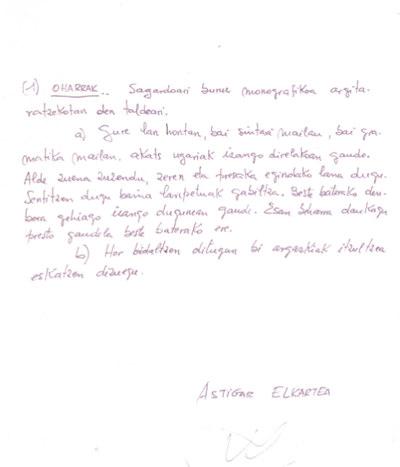 (-1) OHARRAK.. Sagardoari buruz monografikoa argita-
ratzekotan den taldeari.
a) Gure lan hontan, bai sintasi mailan, bai gra-
matika mailan, akats ugariak izango direlakoan gaude.
Alde zuena zuzendu, zeren eta presaka egindako lana dugu.
Sentitzen dugu baina lanpetuak gabiltza. Beste baterako den-
bora gehiago izango dugunean gaude. Esan beharra daukagu
presto gaudela beste baterako ere.
b) Hor bidaltzen ditugun bi argazkiak itzultzea
eskatzen dizuegu.
ASTIGAR ELKARTEA